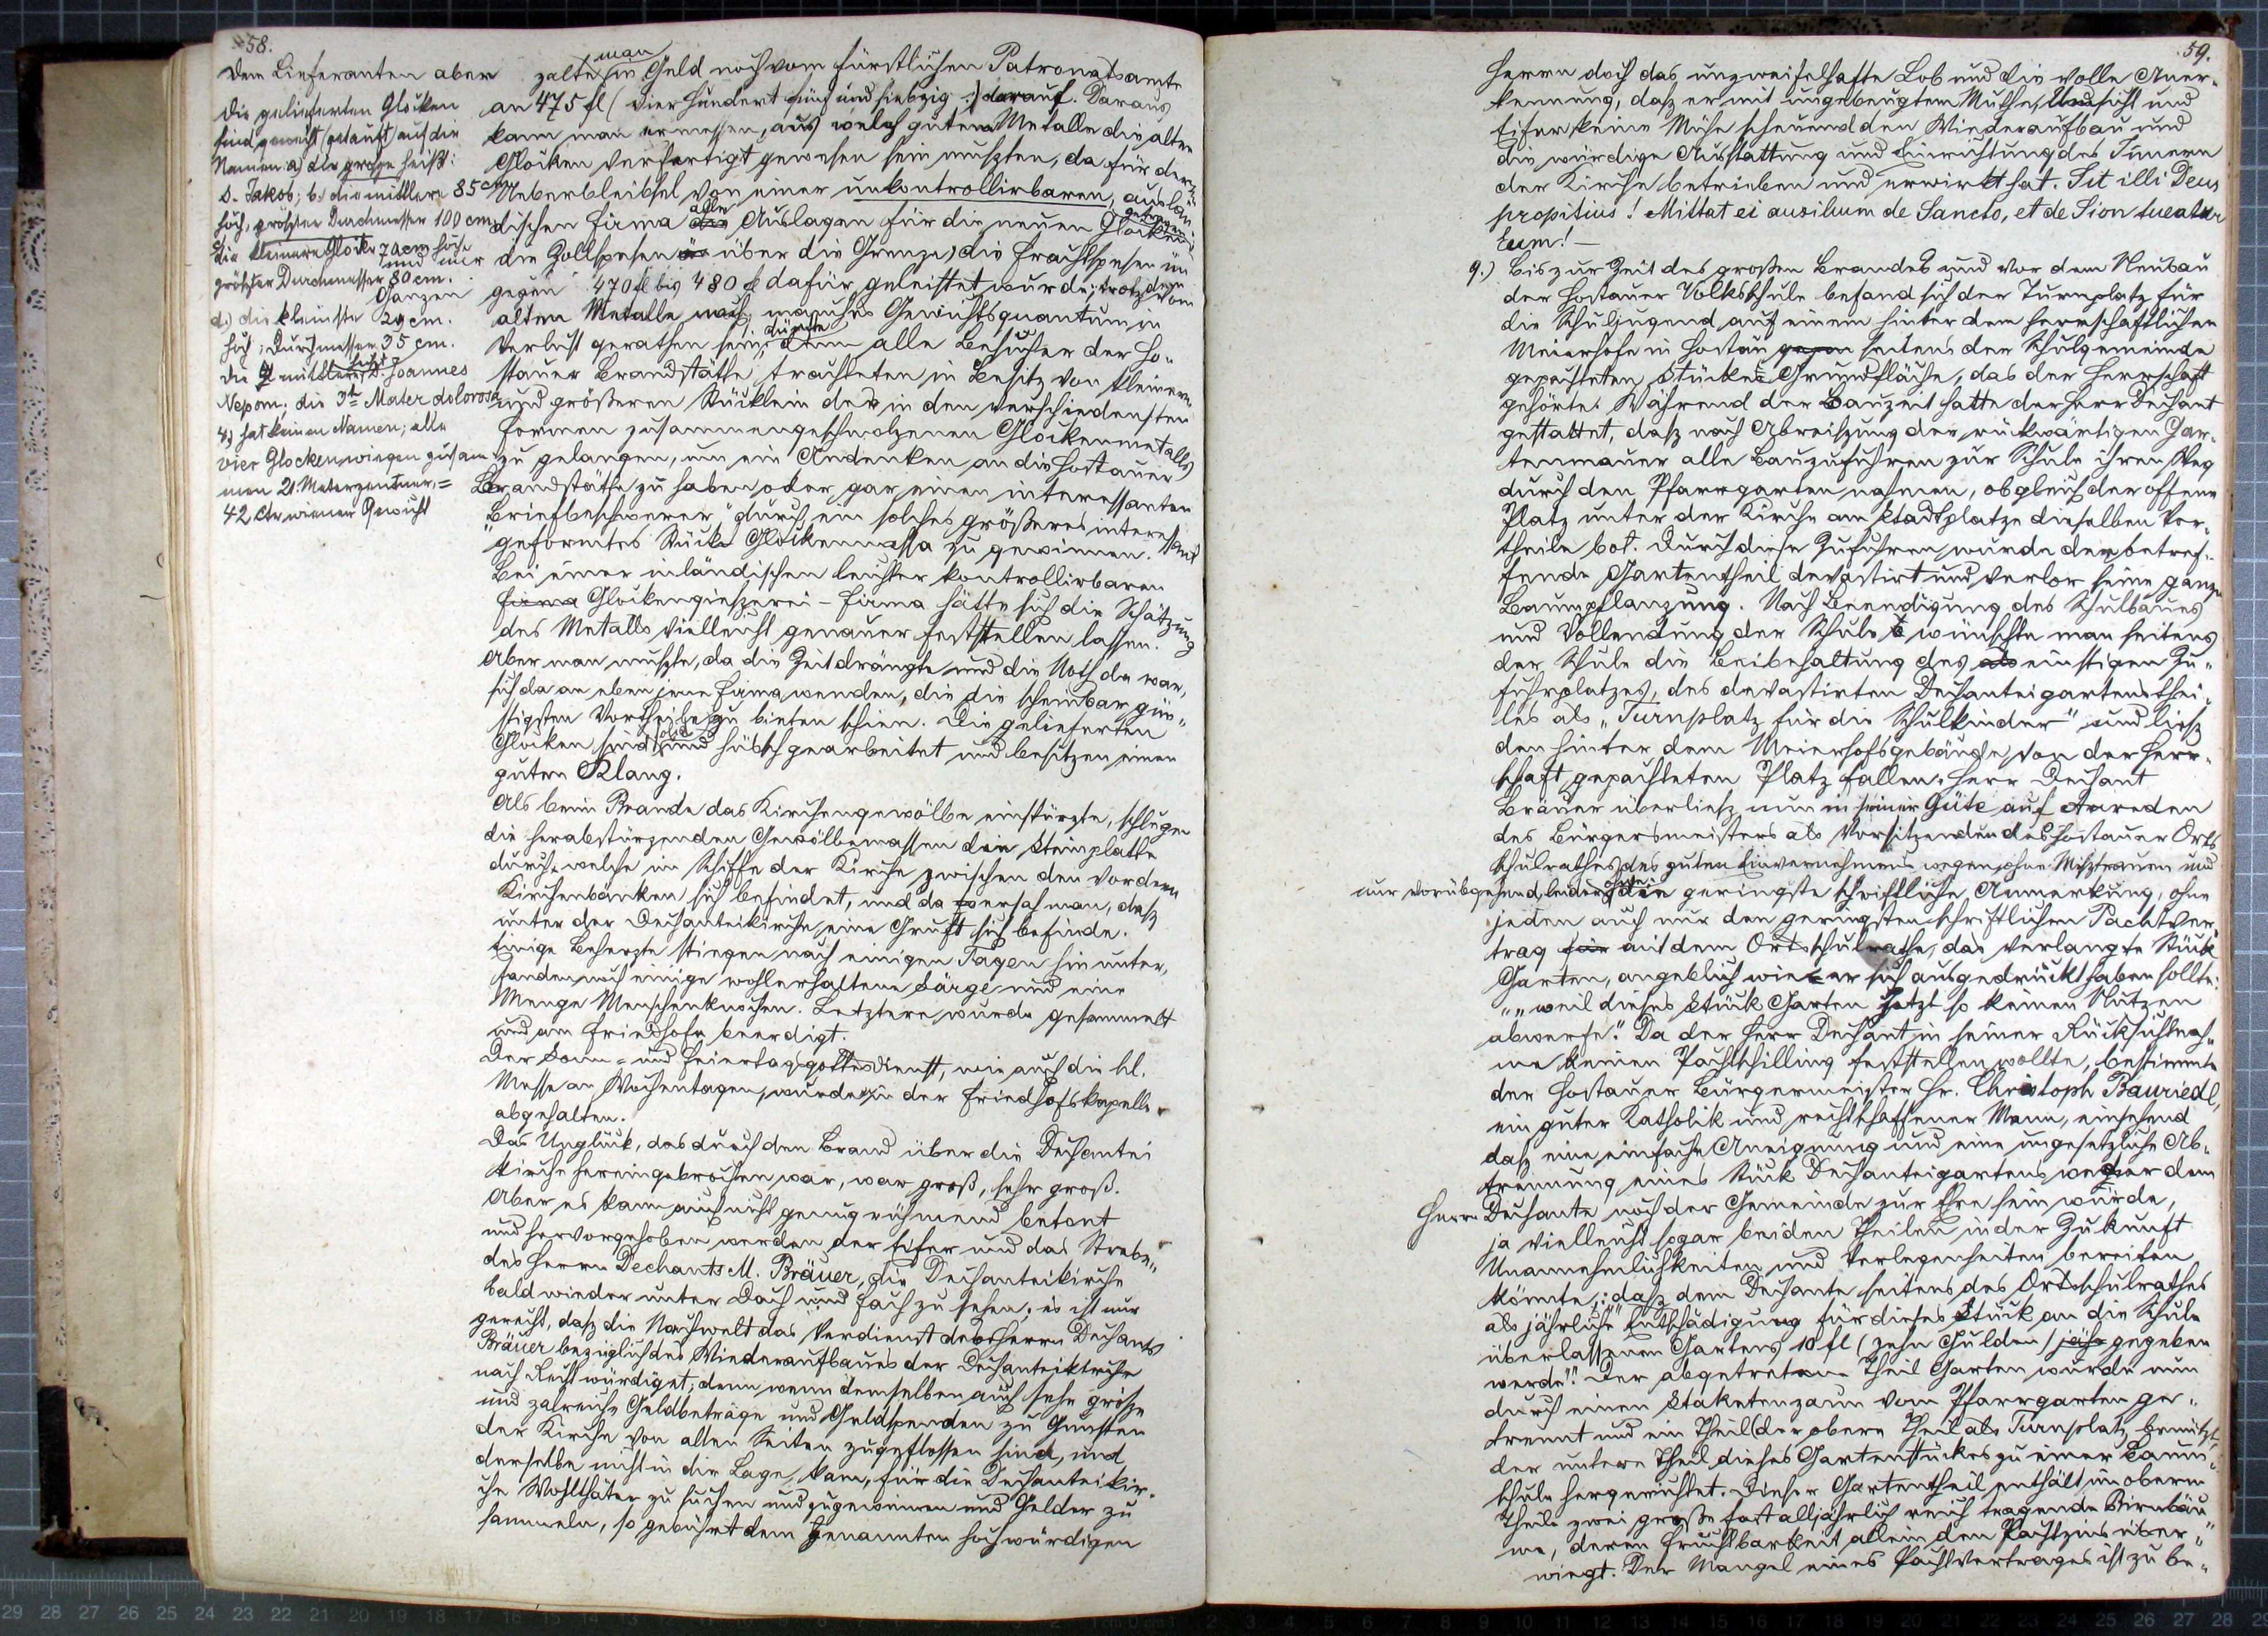 58.
Dem Lieferanten aber
die gelieferten Glocken
sind geweiht (getauft) auf die
Namen: a) die große heißt:
S. Jakob; b. die mittlere 85 cm
hoch, größter Durchmesser 100 cm
die kleinere Glocke 70 cm hoch
und
größter Durchmesser 80 cm.
Ganzen
d.) die kleinste 29 cm.
hoch; Durchmesser 35 cm.
Die mittlere heißt S. Joannes
Nepom; die 3te Mater dolorosa
4) hat keinen Namen; alle
vier Glocken wiegen zusam
men 21. Meterzentner, =
42 Ctr wiener Gewicht
zalte man in Geld noch vom fürstlichen Patronatsamte
an 475 fl (vier hundert fünf und siebzig :) darauf. Daraus
kann man ermessen, aus welch gutem Metalle die alten
Glocken verfertigt gewesen sein mußten, da für der
Ueberbleibsel von einer unkontrollirbaren, auslän
dischen Firma alle Auslagen für die neuen Glocken getragen
die Zollspesen über die Grenze, die Frachtspesen im
gegen 470 fl bis 480 fl dafür geleistet wurde; trotzdem vom
alten Metalle noch manches Gewichtsquantum in
Verlust gerathen sein dürfte, denn alle Besucher der Ho-
stauer Brandstätte trachteten in Besitz von kleinern
und größeren Stücklein des in den verschiedensten
Formen zusammengeschmolzenen Glockenmetalls
zu gelangen, um ein Andenken an die Hostauer
Brandstätte zu haben oder gar einen interessanten
Briefbeschwerer" durch ein solches größeres interessant
geformtes Stück Glockenmassa zu gewinnen.
Bei einer inländischen leichter kontrollirbaren
Firma Glockengießerei-Firma hätte sich die Schätzung
des Metalls vielleicht genauer feststellen lassen.
Aber man mußte, da die Zeit drängte und die Noth da war,
sich da an eben jene Firma wenden, die die scheinbar gün-
stigsten Vortheile zu bieten schien. Die gelieferten
Glocken sind solid und hübsch gearbeitet und besitzen einen
guten Klang.
Als beim Brande das Kirchengewölbe einstürzte, schlugen
die herabstürzenden Gewölbemassen die Steinplatte
durch, welche im Schiffe der Kirche zwischen den vordern
Kirchenbänken sich befindet, und da ersah man, daß
unter der Dechanteikirche eine Gruft sich befinde.
Einige Beherzte stiegen nach einigen Tagen hinunter,
fanden noch einige wohlerhaltene Särge und eine
Menge Menschenknochen. Letztere wurde gesammelt
und am Friedhofe beerdigt.
Der Sonn- und Feiertagsgottesdienst, wie auch die hl.
Messe an Wochentagen, wurde in der Friedhofskapelle
abgehalten.
Das Unglück, das durch den Brand über die Dechantei
kirche hereingebrochen war, war groß, sehr groß.
Aber es kann auch nicht genug rühmend betont
und hervorgehoben werden der Eifer und das Streben
des Herrn Dechants M. Bräuer, die Dechanteikirche
bald wieder unter Dach und Fach zu sehen; es ist nur
gerecht, daß die Nachwelt das Verdienst des Herrn Dechants
Bräuer bezüglich des Wiederaufbaues der Dechanteikirche
nach Recht würdiget; denn wenn demselben auch sehr große
und zalreiche Geldbeträge und Geldspenden zu Gunsten
der Kirche von allen Seiten zugeflossen sind, und
derselbe nicht in die Lage kam, für die Dechanteikir-
che Wohlthäter zu suchen und zu gewinnen und Gelder zu
sammeln, so gebührt dem genannten hochwürdigen
59.
Herrn doch das unzweifelhafte Lob und die volle Aner-
kennung, daß er mit ungebeugtem Muthe, Umsicht und
Eifer keine Mühe scheuend den Wiederaufbau und
die würdige Ausstattung und Einrichtung des Innern
der Kirche betrieben und erwirkt hat. Sit illi Deus
propitius! Mittat ei auxilium de Sancto, et de Sion tueatur
Eum! —
9.) Bis zur Zeit des großen Brandes und vor dem Neubau
der Hostauer Volksschule befand sich der Turnplatz für
die Schuljugend auf einem hinter dem herrschaftlichen
Meierhofe in Hostau seitens der Schulgemeinde
gepachteten Stücke Grundfläche, das der Herrschaft
gehörte. Während der Bauzeit hatte der Herr Dechant
gestattet, daß nach Abreißung der rückwärtigen Gar-
tenmauer alle Bauzufuhren zur Schule ihren Weg
durch den Pfarrgarten nahmen, obgleich der offene
Platz unter der Kirche am Stadtplatze dieselben Vor-
theile bot. Durch diese Zufuhren wurde der betref-
fende Gartentheil devastirt und verlor seine ganze
Baumpflanzung. Nach Beendigung des Schulbaues
und Vollendung der Schule wünschte man seitens
der Schule die Beibehaltung des als einstigen Zu-
fuhrplatzes, des devastirten Dechanteigartensthei-
les als „Turnplatz für die Schulkinder" und ließ
den hinter dem Meierhofsgebäude von der Herr-
schaft gepachteten Platz fallen. Herr Dechant
Bräuer überließ nun in seiner Güte auf Anreden
des Bürgermeisters als Vorsitzenden des Hostauer Orts
schulrathes des guten Einvernehmens wegen ohne Mißtrauen und
nur vorübgehend, leider ohne die geringste schriftliche Anmerkung, ohne
jeden auch nur den geringsten schriftlichen Pachtver-
trag mit dem Ortsschulrathe, das verlangte Stück
Garten, angeblich wie er sich ausgedrückt haben sollte:
„„weil dieses Stück Garten jetzt so keinen Nutzen
abwerfe." Da der Herr Dechant in seiner Rücksichtnah-
me keinen Pachtschilling feststellen wollte, bestimmte
der Hostauer Bürgermeister Hr. Christoph Bauriedl,
ein guter Katholik und rechtschaffener Mann, einsehend
daß eine einfache Aneignung und eine ungesetzliche Ab-
trennung eines Stück Dechanteigartens weder dem
Herrn Dechante noch der Gemeinde zur Ehre sein würde,
ja vielleicht sogar beiden Theilen in der Zukunft
Unannehmlichkeiten und Verlegenheiten bereiten
könnte, : daß dem Dechante seitens des Ortsschulrathes
als jährliche Entschädigung für dieses Stück an die Schule
überlassenen Gartens 10 fl (zehn Gulden) gegeben
werde". Der abgetretene Theil Garten wurde nun
durch einen Staketenzaun vom Pfarrgarten ge-
trennt und ein Theil (der obere Theil als Turnplatz benützt,
der untere Theil dieses Gartenstückes zu einer Baum-
schule hergerichtet. Dieser Gartentheil enthält im obern
Theile zwei große fast alljährlich reich tragende Birnbäu-
me, deren Fruchtbarkeit allein den Pachtzins über-
wiegt. Der Mangel eines Pachtvertrages ist zu be-